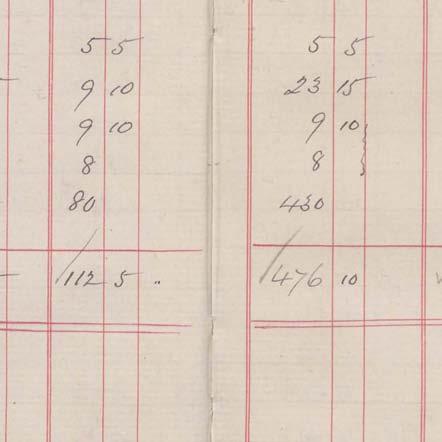 5 5
9 10
9 10
8
80
112 5 "
5 5
23 15
9 10
8
430
476 10